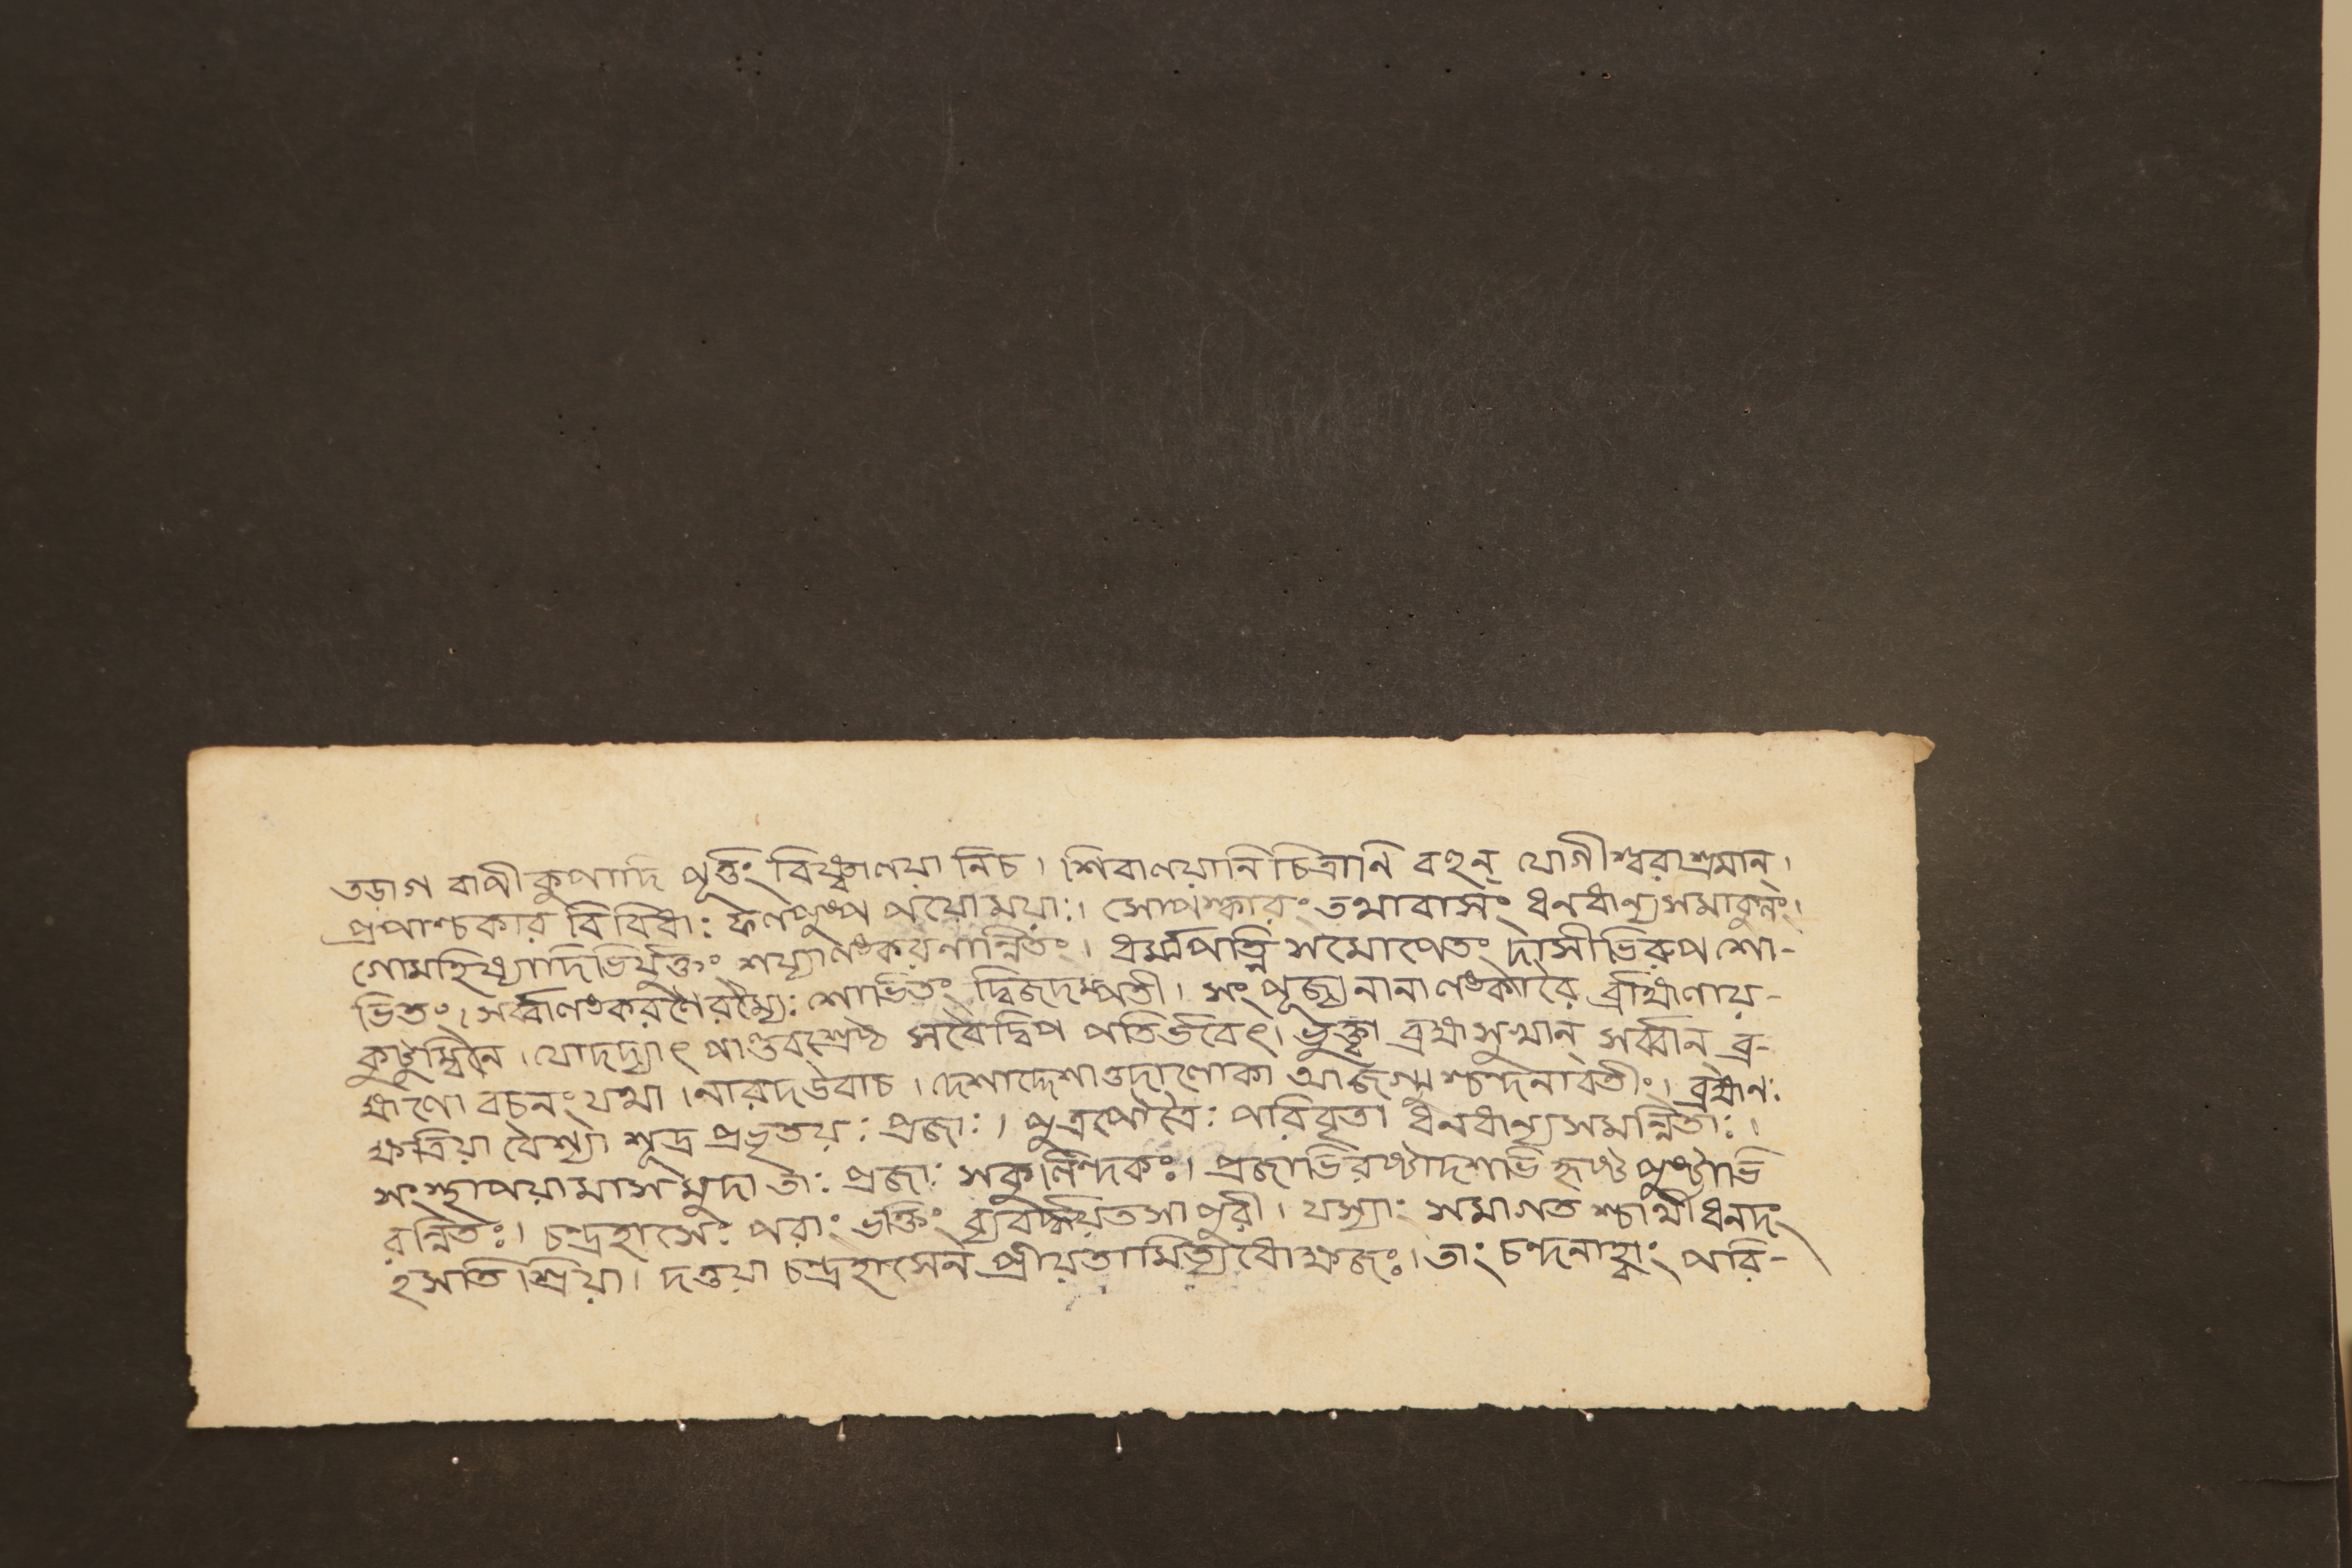 তড়াগ বাপী কুপাদি পূর্ত্তং বিষ্ণ্বালয়া নিচ। শিবালয়ানি চিত্রানি বহূন্ যোগীশ্বরাশ্রমান্।
প্রপাশ্চকার বিবিধাঃ ফলপুষ্প পয়োময়াঃ। সোপস্কারং তথাবাসং ধনধান্যসমাকুলং।
গোমহিষ্যাদিভির্যুক্তং শয্যালংকরণান্বিতং। ধর্ম্মপত্নি সমোপেতং দাসীভিরুপ শো-
ভিতং। সর্ব্বালংকরণৈরম্যৈঃ শোভিতং দ্বিজদম্পতী। সংপূজ্য নানালংকারৈ র্ব্রাহ্মণায়-
কুটুম্বিনে। যোদদ্যাৎ পাণ্ডবশ্রেষ্ঠ সবৈদ্বিপ পতির্ভবেৎ। ভুক্ত্বা ব্রহ্মসুখান্ সর্ব্বান্ ব্র-
হ্মণো বচনং যথা। নারদউবাচ। দেশাদ্দেশাত্তদালোকা আজগ্মু শ্চন্দনাবতীং। ব্রহ্মানঃ
ক্ষত্রিয়া বৈশ্যা শূদ্র প্রভৃতয়ঃ প্রজাঃ। পুত্রপৌত্রৈঃ পরিবৃতা ধনধান্যসমন্বিতাঃ।
সংস্থাপয়ামাস মুদা তাঃ প্রজাঃ সকুলিন্দকঃ। প্রজাভিরষ্টাদশাভি র্হৃষ্ট পুষ্টাভি
রন্বিতঃ। চন্দ্রহাসেঃ পরাং ভক্তিং ব্যবর্দ্ধয়িতসা পুরী। যস্যাঃ সমাগত শ্চার্থী ধনদং
হসতি শ্রিয়া। দত্তয়া চন্দ্রহাসেন প্রীয়তামিত্যধোক্ষজঃ। তাং চন্দনাহ্বাং পরি-